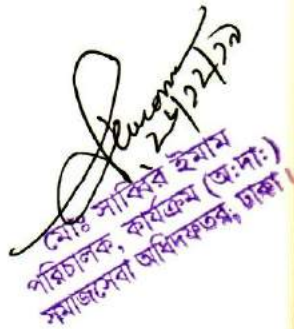 ২৮/১২/১৯
মোঃ সাব্বির ইমাম
পরিচালক, কার্যক্রম (অ:দা:)
সমাজসেবা অধিদফতর, ঢাকা।